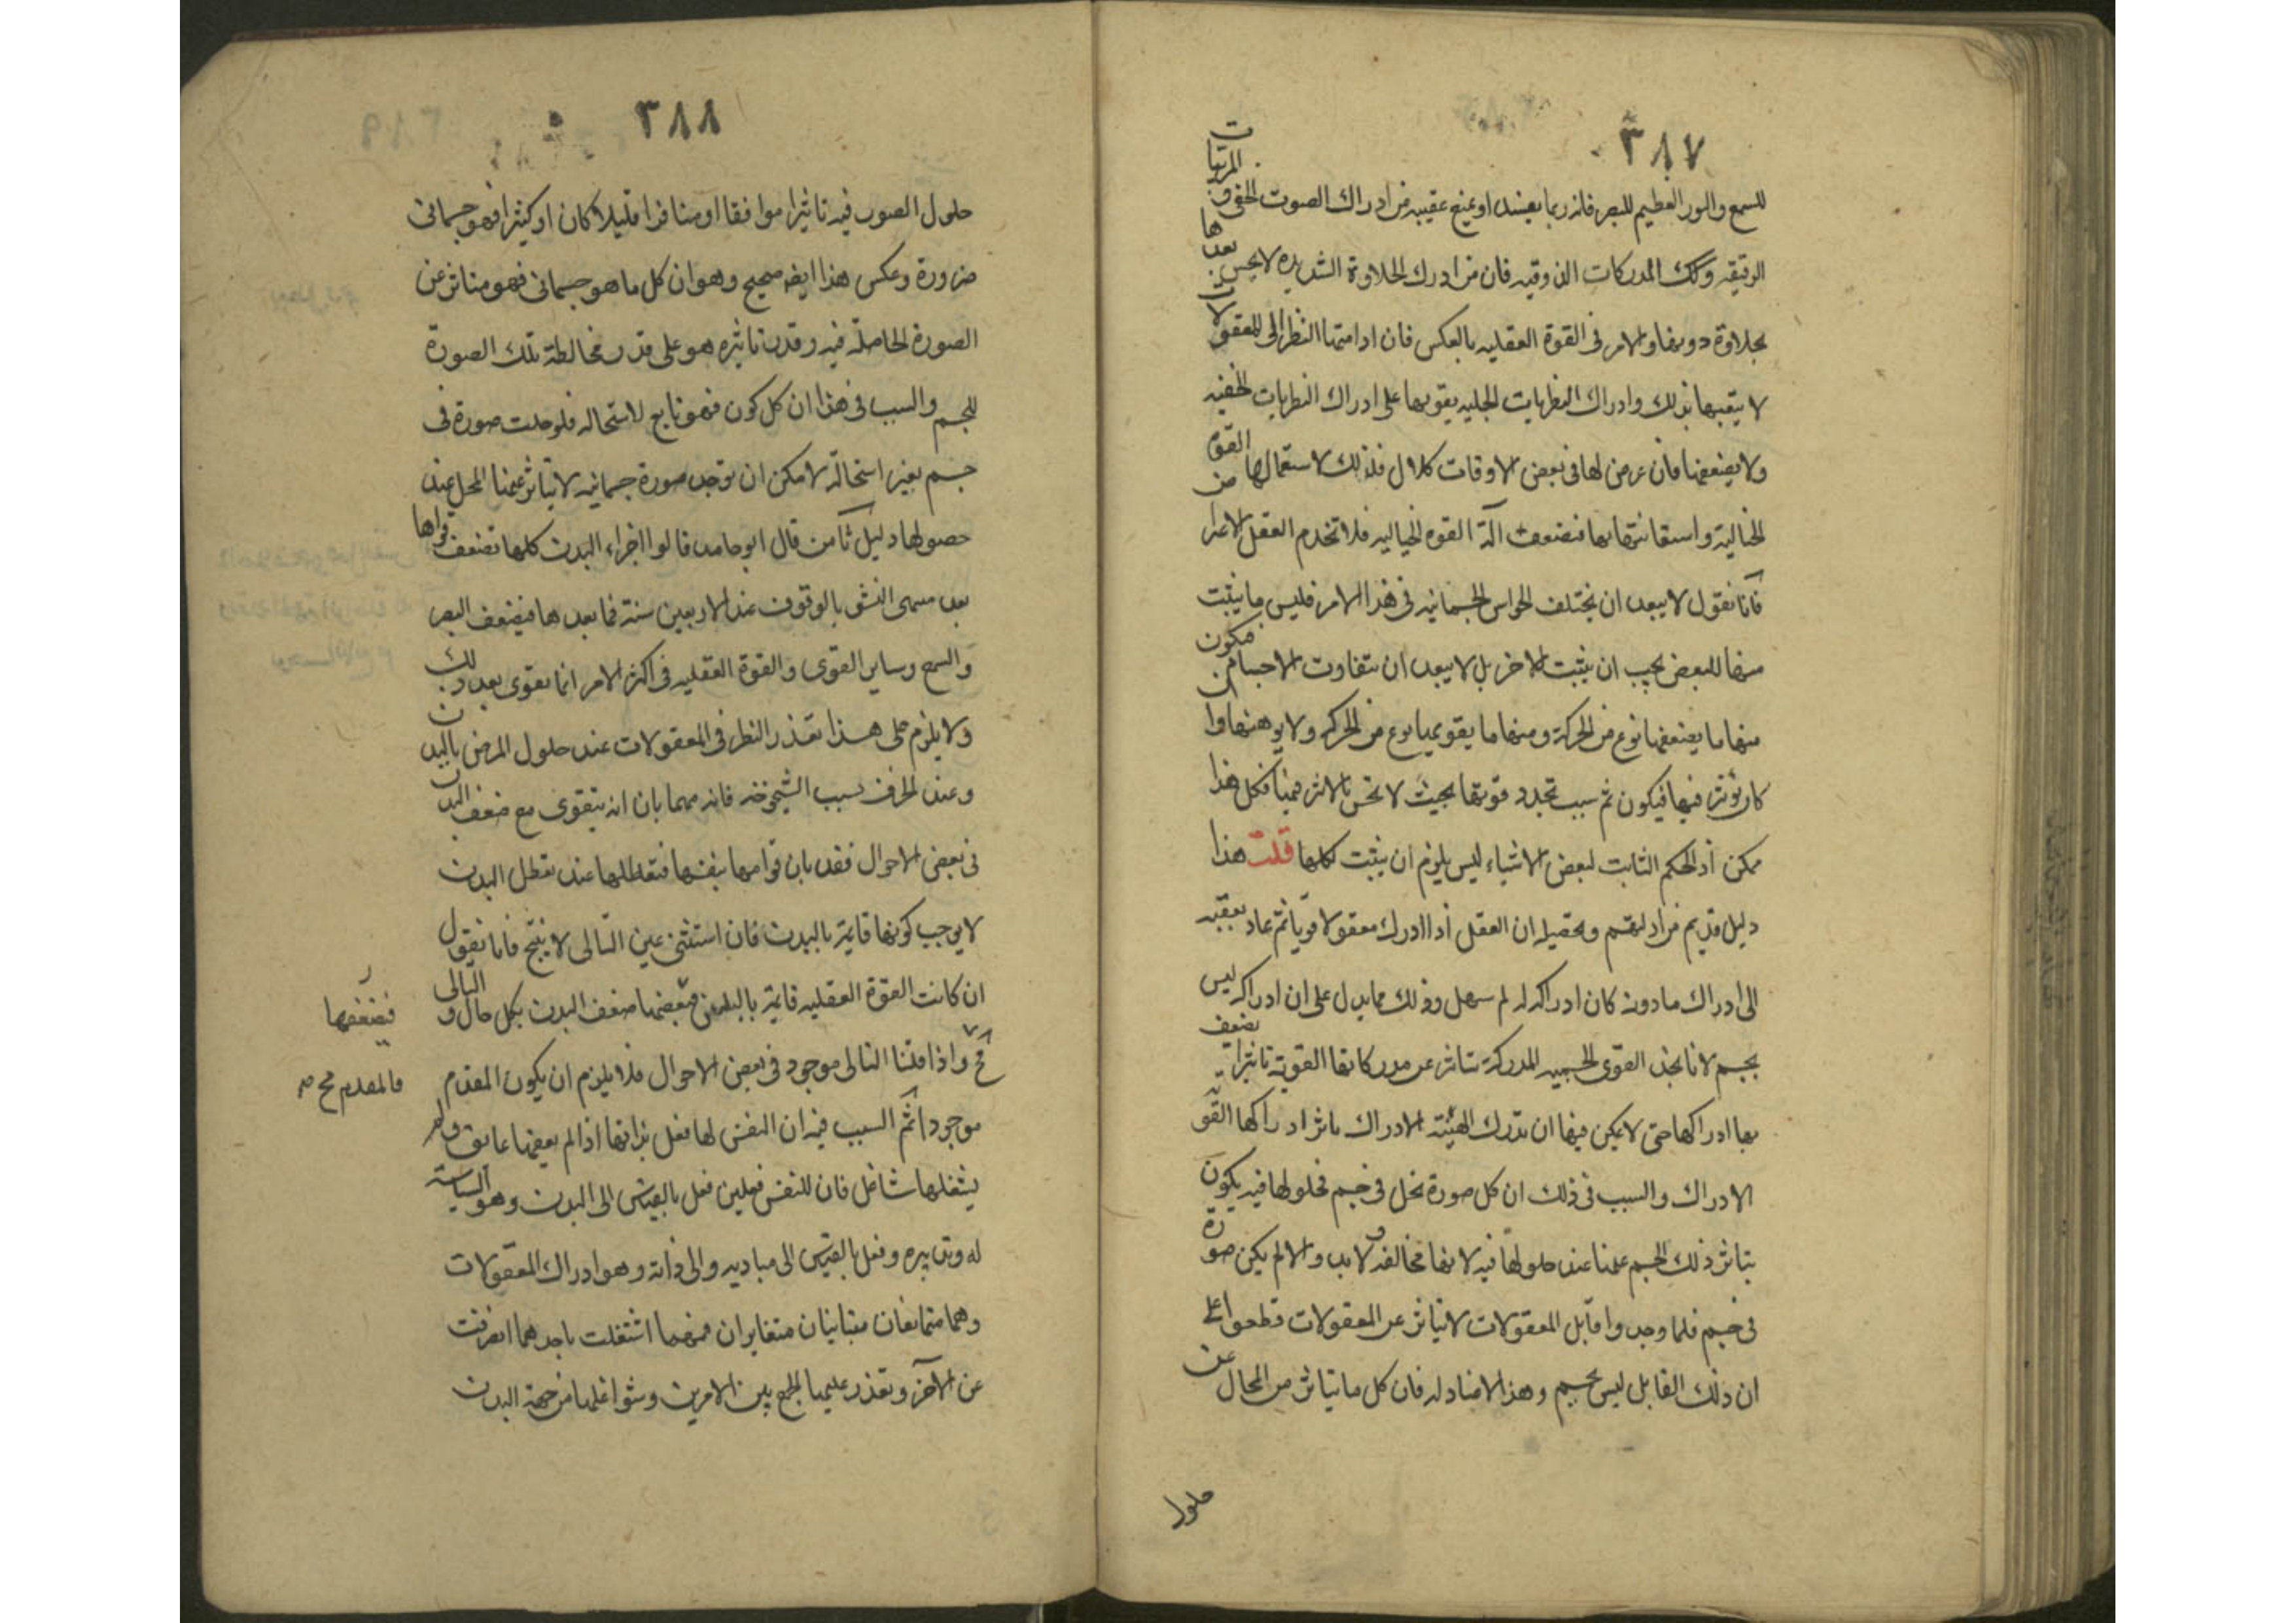 ٣٨٧
للسمع والنور العظيم للبصر فانه ربما يفسد او يمنع عقيبه من ادراك الصوت الخفي والمرئيات
الدقيقه وكك المدركات الذوقيه فان من ادرك الحلاوة الشديده لا يحس بعدها
بحلاوة دونها والامر في القوة العقليه بالعكس فان ادامتها النظر الى المعقولات
لا يتعبها بذلك وادراك النظريات الجليه يقويها على ادراك النظريات الخفيه
ولا يضعفها فان عرض لها في بعض الاوقات كلال فذلك لاستعمالها القوة
الخيالية واستعانتها بها فتضعف آلة القوه الخياليه فلا تخدم العقل الاعتراض
فانا نقول لا يبعد ان يختلف الحواس الجسمانيه في هذا الامر فليس ما يثبت
منها للبعض يجب ان يثبت للاخر بل لا يبعد ان يتفاوت الاجسام فيكون
منها ما يضعفها نوع من الحركة ومنها ما يقويها نوع من الحركه ولا يوهنها وان
كان يؤثر فيها فيكون ثم سبب تجدد قوتها بحيث لا تحس بالاثر فيها فكل هذا
ممكن اذ الحكم الثابت لبعض الاشياء ليس يلزم ان يثبت لكلها قلت هذا
دليل قديم من ادلتهم وتحصيله ان العقل اذا ادرك معقولا قويا ثم عاد بعقبه
الى ادراك ما دونه كان ادراكه له سهل وذلك مما يدل على ان ادراكه ليس
بجسم لانا نجد القوى الحسيه المدركة تتاثر عن مدركاتها القوية تاثيرا يضعف
بها ادراكها حتى لا يمكن فيها ان تدرك الهينة الادراك باثر ادراكها القوية
الادراك والسبب في ذلك ان كل صورة تحل في جسم فحلولها فيه يكون
بتاثر ذلك الجسم عنها عند حلولها فيه لانها مخالفه ولا بد والا لم يكن صورة
في جسم فلما وجدوا قابل المعقولات لا يتاثر عن المعقولات قطعوا على
ان ذلك القابل ليس بجسم وهذا لا عناد له فان كل ما يتاثر من المحال عن
حلول
٣٨٨
حلول الصور فيه تاثيرا موافقا او منافرا قليلا كان او كثيرا فهو جسماني
ضرورة وعكس هذا ايضه صحيح وهو ان كل ما هو جسماني فهو متاثر عن
الصورة الحاصلة فيه وقدر تاثيره هو على قدر مخالطة تلك الصورة
للجسم والسبب في هذا ان كل كون فهو تابع لاستحاله فلو حلت صورة في
جسم بغير استحالة لامكن ان توجد صورة جسمانيه لا يتاثر عنها المحل عند
حصولها دليل ثامن قال ابو حامد قالوا اجزاء البدن كلها تضعف قواها
بعد منتهى النشو بالوقوف عند الاربعين سنة فما بعدها فيضعف البصر
والسمع وساير القوى والقوة العقليه في اكثر الامر انما تقوى بعد ذلك
ولا يلزم على هذا تعذر النظر في المعقولات عند حلول المرض بالبدن
وعند الخرف بسبب الشيخوخه فانه مهما بان انه يتقوى مع ضعف البدن
في بعض الاحوال فقد بان قوامها بنفسها فتعطلها عند تعطل البدن
لا يوجب كونها قايمة بالبدن فان استثنى عين التالى لا ينتج فانا نقول
ان كانت القوة العقليه قايمة بالبدن فيضعفها ضعف البدن بكل حال والتالى
مح واذا قلنا التالى موجود في بعض الاحوال فلا يلزم ان يكون المقدم
موجودا ثم السبب فيه ان النفس لها فعل بذاتها اذا لم يعقها عايق ولم
يشغلها شاغل فان للنفس فعلين فعل بالقياس الى البدن وهو السياسة
له وتدبيره وفعل بالقياس الى مباديه والى ذاته وهو ادراك المعقولات
وهما متمانعان متباينان متغايران فمهما اشتغلت باحدهما انصرفت
عن الآخر وتعذر عليها الجمع بين الامرين وشواغلها من جهة البدن
فيضعفها
فالمقدم مح صح